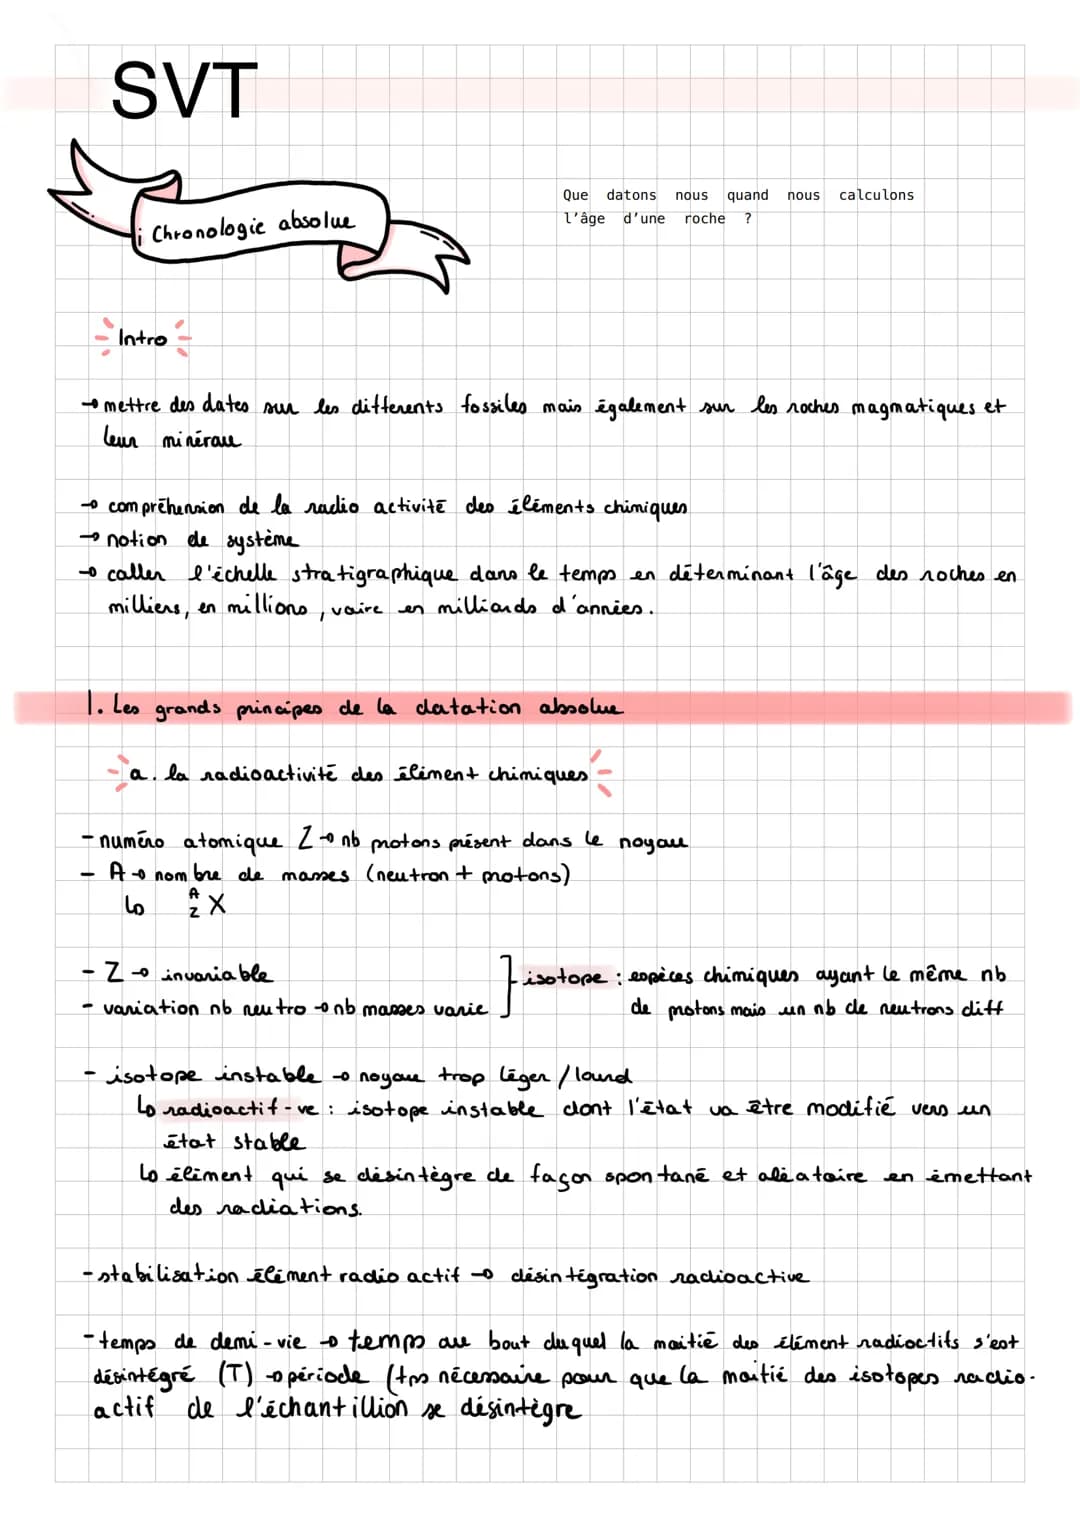 SVT
Chronologie absolue
Que datons nous quand nous calculons
l'âge d'une roche ?
Intro
→ mettre des dates sur les differents fossiles mais également sur les roches magmatiques et
leur minéraux
→ compréhension de la radio activité des éléments chimiques
→ notion de système
→ caller l'échelle stratigraphique dans le temps en déterminant l'âge des roches en
milliers, en millions, voire en milliards d'années.
1. Les grands principes de la datation absolue
a. la radioactivité des élément chimiques
- numéro atomique Z → nb protons présent dans le noyau
- A → nombre de masses (neutron + protons)
↳ ᴬ_Z X
- Z → invariable
- variation nb neutro → nb masses varie
isotope : espèces chimiques ayant le même nb
de protons mais un nb de neutrons diff
- isotope instable → noyau trop léger / lourd
↳ radioactif-ve : isotope instable dont l'état va être modifié vers un
état stable
↳ élément qui se désintègre de façon spontané et aléatoire en émettant
des radiations.
- stabilisation élément radio actif → désintégration radioactive
- temps de demi-vie → temps au bout duquel la moitié des élément radioctifs s'est
désintégré (T) → période (tps nécessaire pour que la moitié des isotopes radio-
actif de l'échantillion se désintègre